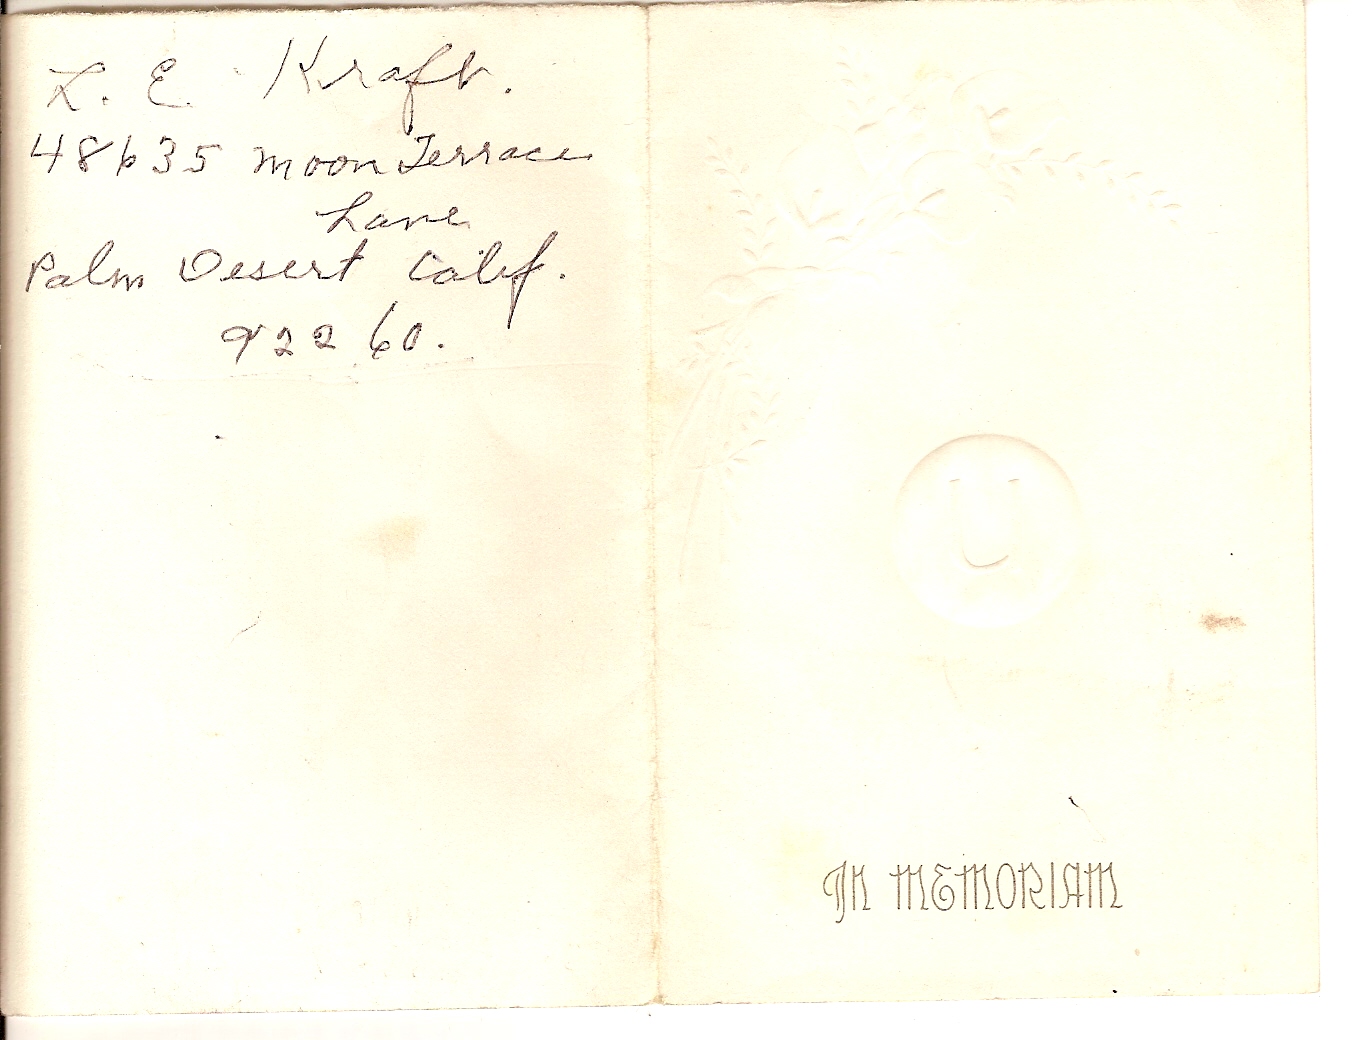 L. E. Kraft.
48635 Moon Terrace
Lane
Palm Desert Calif.
92260.
IN MEMORIAM